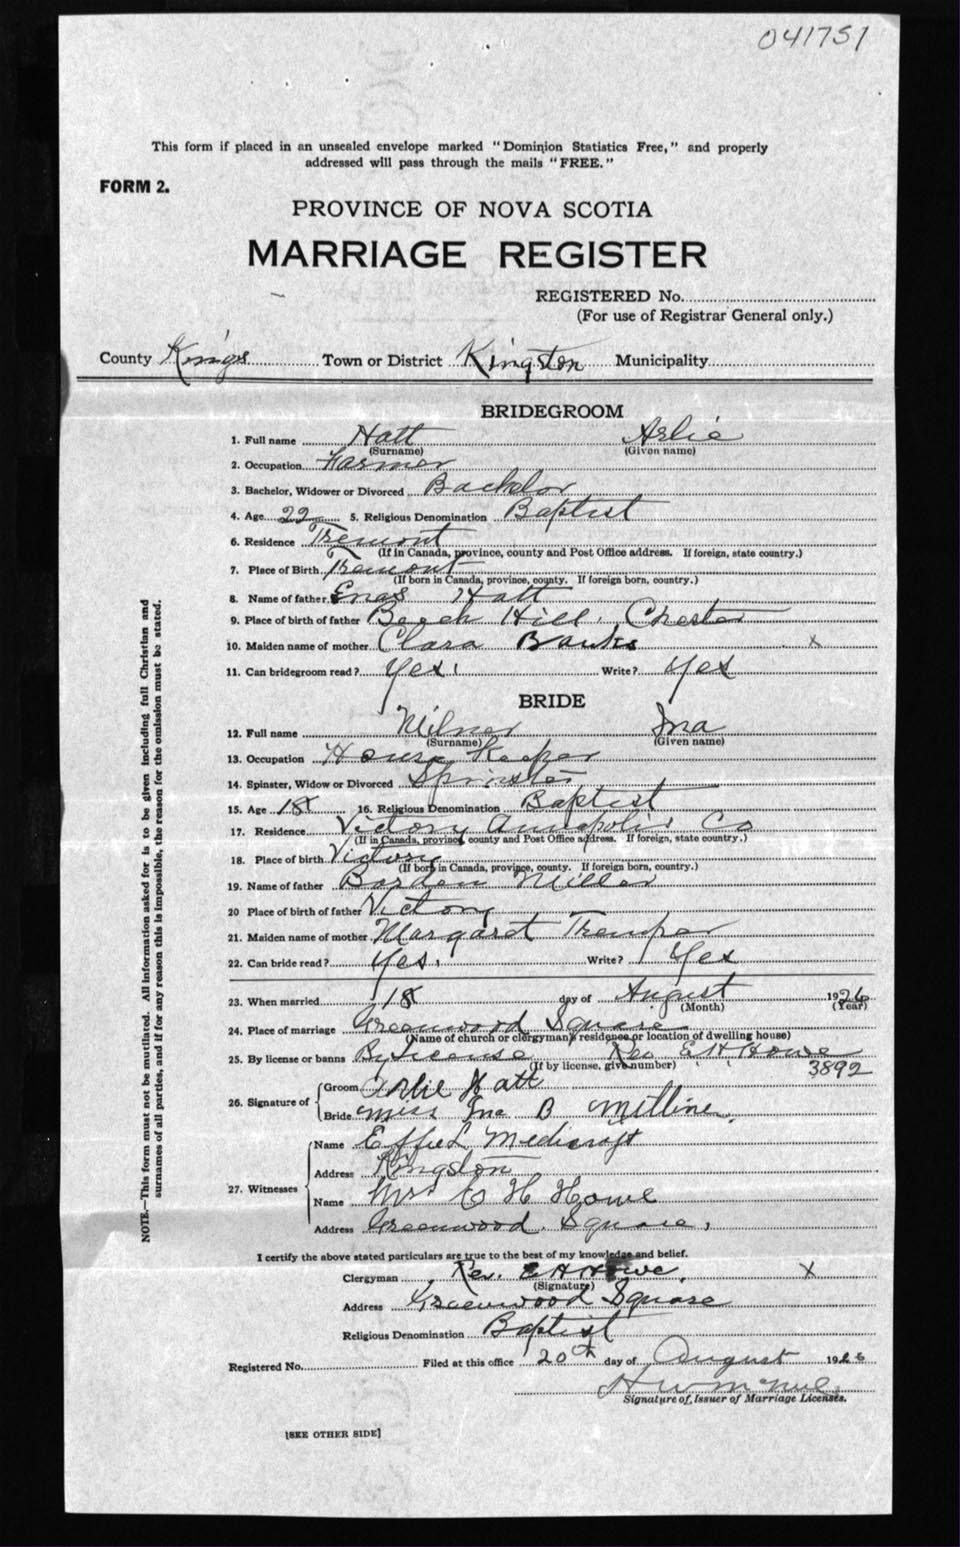 041751
This form if placed in an unsealed envelope marked "Dominion Statistics Free," and properly
addressed will pass through the mails "FREE."
FORM 2.
PROVINCE OF NOVA SCOTIA
MARRIAGE REGISTER
REGISTERED No.
(For use of Registrar General only.)
County Kings Town or District Kingston Municipality
BRIDEGROOM
1. Full name Hatt Arlie
(Surname) (Given name)
2. Occupation Farmer
3. Bachelor, Widower or Divorced Bachelor
4. Age 22 5. Religious Denomination Baptist
6. Residence Tremont
(If in Canada, province, county and Post Office address. If foreign, state country.)
7. Place of Birth Tremont
(If born in Canada, province, county. If foreign born, country.)
8. Name of father Enas Hatt
9. Place of birth of father Beech Hill, Chester
10. Maiden name of mother Clara Banks x
11. Can bridegroom read? Yes. Write? Yes
BRIDE
12. Full name Milner Ina
(Surname) (Given name)
13. Occupation House Keeper
14. Spinster, Widow or Divorced Spinster
15. Age 18 16. Religious Denomination Baptist
17. Residence Victory Annapolis Co
(If in Canada, province, county and Post Office address. If foreign, state country.)
18. Place of birth Victory
(If born in Canada, province, county. If foreign born, country.)
19. Name of father Borden Miller
20 Place of birth of father Victory
21. Maiden name of mother Margaret Tremper
22. Can bride read? Yes. Write? Yes
23. When married 18 day of August 1926
(Month) (Year)
24. Place of marriage Greenwood Square
(Name of church or clergyman's residence or location of dwelling house)
25. By license or banns By License Rev E H Howe
(If by license, give number) 3892
26. Signature of
Groom Arlie Hatt
Bride miss Ina B
27. Witnesses
Name Effie L Medicraft
Address Kingston
Name Mrs E H Howe
Address Greenwood Square,
I certify the above stated particulars are true to the best of my knowledge and belief.
Clergyman Rev. E H Howe. X
(Signature)
Address Greenwood Square
Religious Denomination Baptist
Registered No. Filed at this office 20th day of August 1926
H W
Signature of Issuer of Marriage Licenses.
[SEE OTHER SIDE]
NOTE.—This form must not be mutilated. All information asked for is to be given including full Christian and
surnames of all parties, and if for any reason this is impossible, the reason for the omission must be stated.